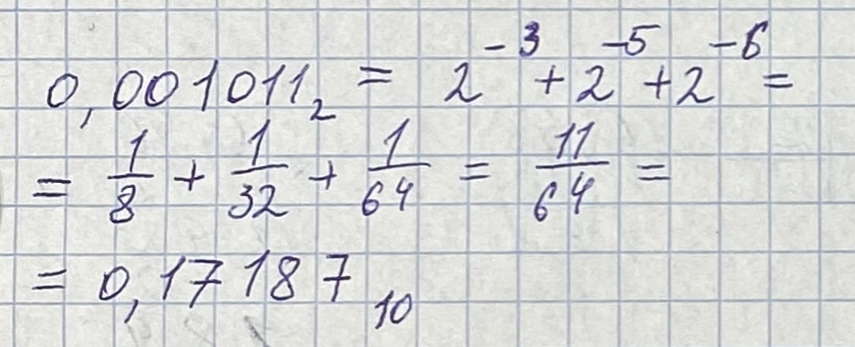 0,001011₂ = 2⁻³ + 2⁻⁵ + 2⁻⁶ =
= 1/8 + 1/32 + 1/64 = 11/64 =
= 0,17187₁₀